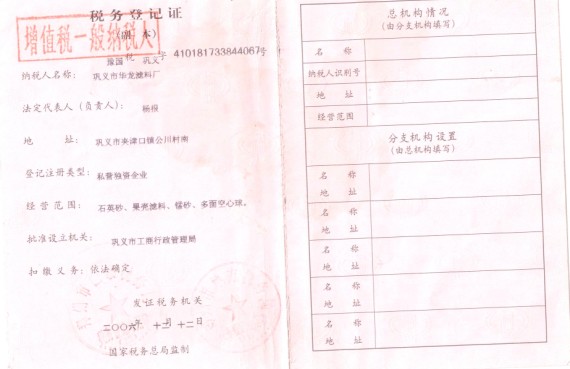 税务登记证
(副 本)
增值税一般纳税人
豫国税 巩义字 410181733844067号
纳税人名称: 巩义市华龙滤料厂
法定代表人(负责人):
地 址: 巩义市夹津口镇公川村南
登记注册类型: 私营独资企业
经营范围: 石英砂、果壳滤料、锰砂、多面空心球。
批准设立机关: 巩义市工商行政管理局
扣缴义务: 依法确定
发证税务机关
二〇〇六年 十二月 十二日
国家税务总局监制
总机构情况
(由分支机构填写)
名 称
纳税人识别号
地 址
经营范围
分支机构设置
(由总机构填写)
名 称
地 址
名 称
地 址
名 称
地 址
名 称
地 址
名 称
地 址